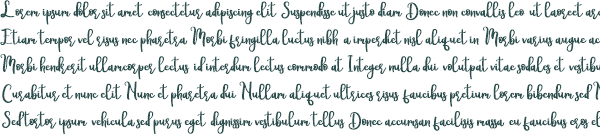 Lorem ipsum dolor sit amet consectetur adipiscing elit Suspendisse ut justo diam Donec non convallis leo ut laoreet
Etiam tempor vel risus nec pharetra Morbi fringilla luctus nibh a imperdiet nisl aliquet in Morbi varius augue
Morbi hendrerit ullamcorper lectus id interdum lectus commodo at Integer nulla dui volutpat vitae sodales et
Curabitur et nunc elit Nunc et pharetra dui Nullam aliquet ultrices risus faucibus pretium lorem bibendum sed
Sed tortor ipsum vehicula sed purus eget dignissim vestibulum tellus Donec accumsan facilisis massa eu faucibus eros